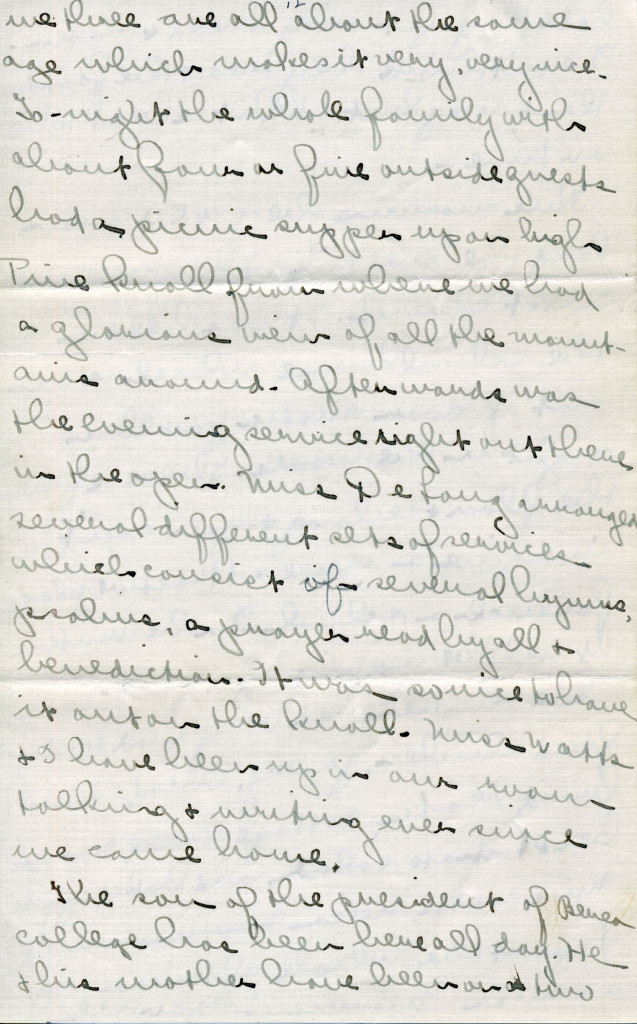 we three are all about the same
age which makes it very, very nice.
To-night the whole family with
about four or five outside guests
had a picnic supper up on high
Pine Knoll from where we had
a glorious view of all the mount-
ains around. Afterwards was
the evening service right out there
in the open. Miss De Long arranged
several different sets of services
which consist of several hymns,
psalms, a prayer read by all +
benediction. It was so nice to have
it out on the knoll. Miss Watts
+ I have been up in our room
talking + writing ever since
we came home.
The son of the president of Berea
college has been here all day. He
+ his mother have been on a two